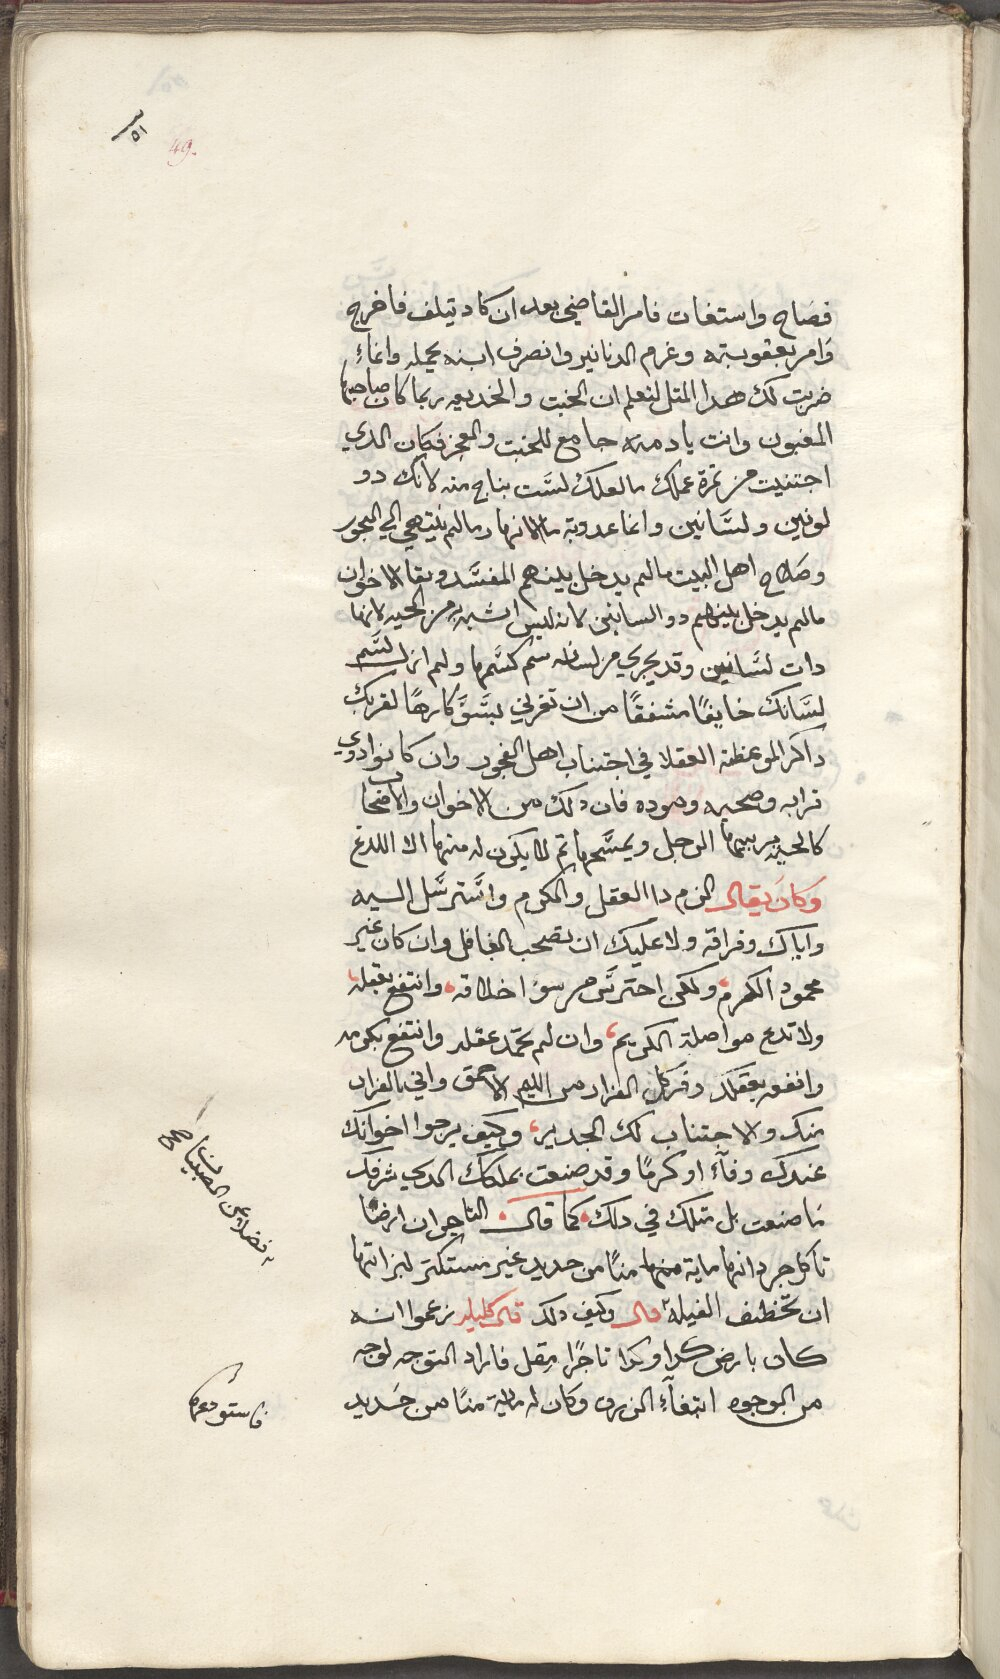 ٥١
49.
فصاح واستغات فامر القاضي بعد ان كاد تيلف فاخرج
وامر بعقوبته وغرم الدنانير وانصرف ابنه يحمله وانماء
ضربت لك هدا المتل لتعلم ان الخبت والخديعه ربما كان صاحبها
المغبون وانت يا دمنه جامع للخبت والعجز فكان الدي
اجتنيت من تمرة عملك مالعلك لست بناج منه لانك دو
لونين ولسانين وانما عدوبة ما الانهار مالم ينتهي الي البحور
وصلاح اهل البيت مالم يدخل بينهم المفسد وبقا الاخوان
مالم يدخل بينهم دو السانين لانه ليس اشبه به من الحيه لانها
دات لسانين وقد يجري من لسانك سم كسمها ولم ازل لسم
لسانك خايفًا مشفقًا من ان تغرني بسوَّ كارهًا لقربك
داكر الموعظة العقلا في اجتناب اهل الفجور وان كانوا دوي
قرابه وصحبه وموده فان دلك من الاخوان والاصحاب
كالحيه يربيها الرجل ويمسحها تم لا يكون له منها الا اللدغ
وكان يقال الزم دا العقل والكرم واسترسل اليه
واياك وفراقه ولا عليك ان تصحب الغافل وان كان غير
محمود الكرم ولكن احترس من سوء اخلاقه وانتفع بعقله
ولا تدع مواصلة الكريم وان لم تحمد عقله وانتفع بكرمه
وانفعه بعقلك وفر كل الفرار من الليم الاحمق واني بالفرار
منك والاجتناب لك الجدير وكيف يرجوا اخوانك
عندك وفآء او كرمًا وقد صنعت بملكك الدي شرفك
ما صنعت بل متلك في دلك كما قال التاجر ان ارضًا
تاكل جردانها ماية منها منًا من حديد غير مستكتر لبزاتها
ان تخطف الفيلة قال وكيف دلك قال كليله زعموا انه
كان بارض كدا وكدا تاجرًا مقل فاراد التوجه لوجه
من الوجوه ابتغآء الرزق وكان له ماية منًا من حَديد
فضلا عن الصبيان صح
فاستودعها